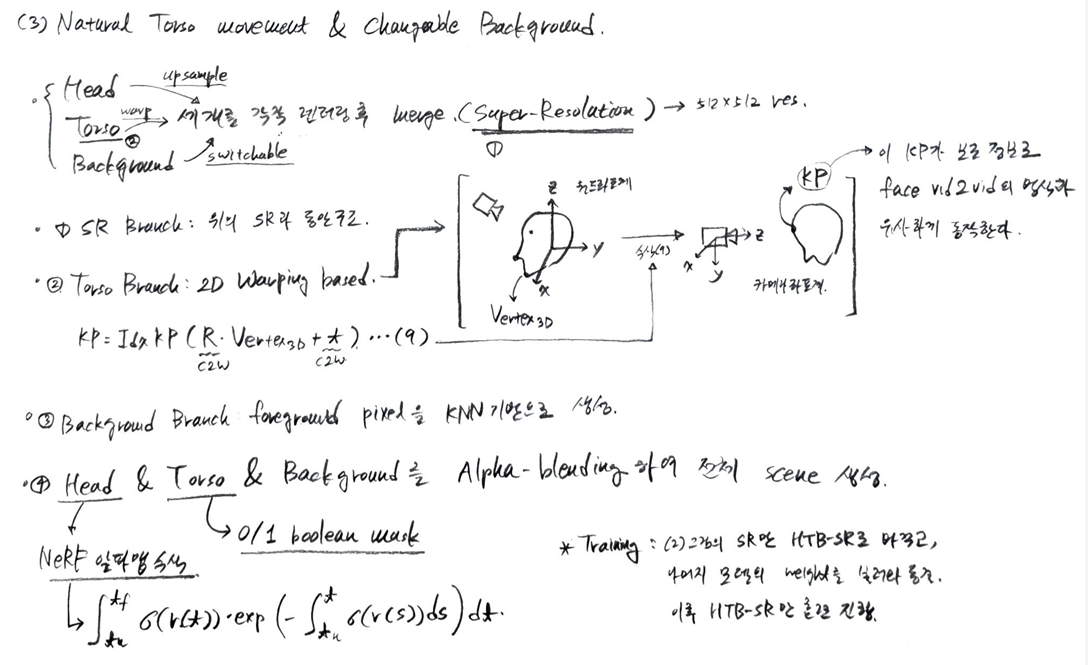 (3) Natural Torso movement & Changeable Background.
Head
upsample
Torso
warp
②
세개를 각각 렌더링 후 merge. (Super-Resolution) → 512×512 res.
①
Background
switchable
· ① SR Branch: 위의 SR과 동일구조.
· ② Torso Branch: 2D Warping based.
KP = Idx KP (R · Vertex3D + t) ··· (9)
C2W
C2W
z
y
x
Vertex3D
수식(9)
z
x
y
카메라좌표계.
KP
→ 이 KP가 보조 정보로
face vid2vid의 방식과
유사하게 동작한다.
· ③ Background Branch foreground pixel을 KNN 기반으로 생성.
· ④ Head & Torso & Background를 Alpha-blending 하여 전체 scene 생성.
0/1 boolean mask
NeRF 알파맵 수식
∫ tf tn σ(r(t)) · exp (- ∫ t tn σ(r(s))ds) dt.
* Training : (2)과정의 SR만 HTB-SR로 바꾸고,
나머지 모델의 weight을 불러와 동결.
이후 HTB-SR만 훈련 진행.